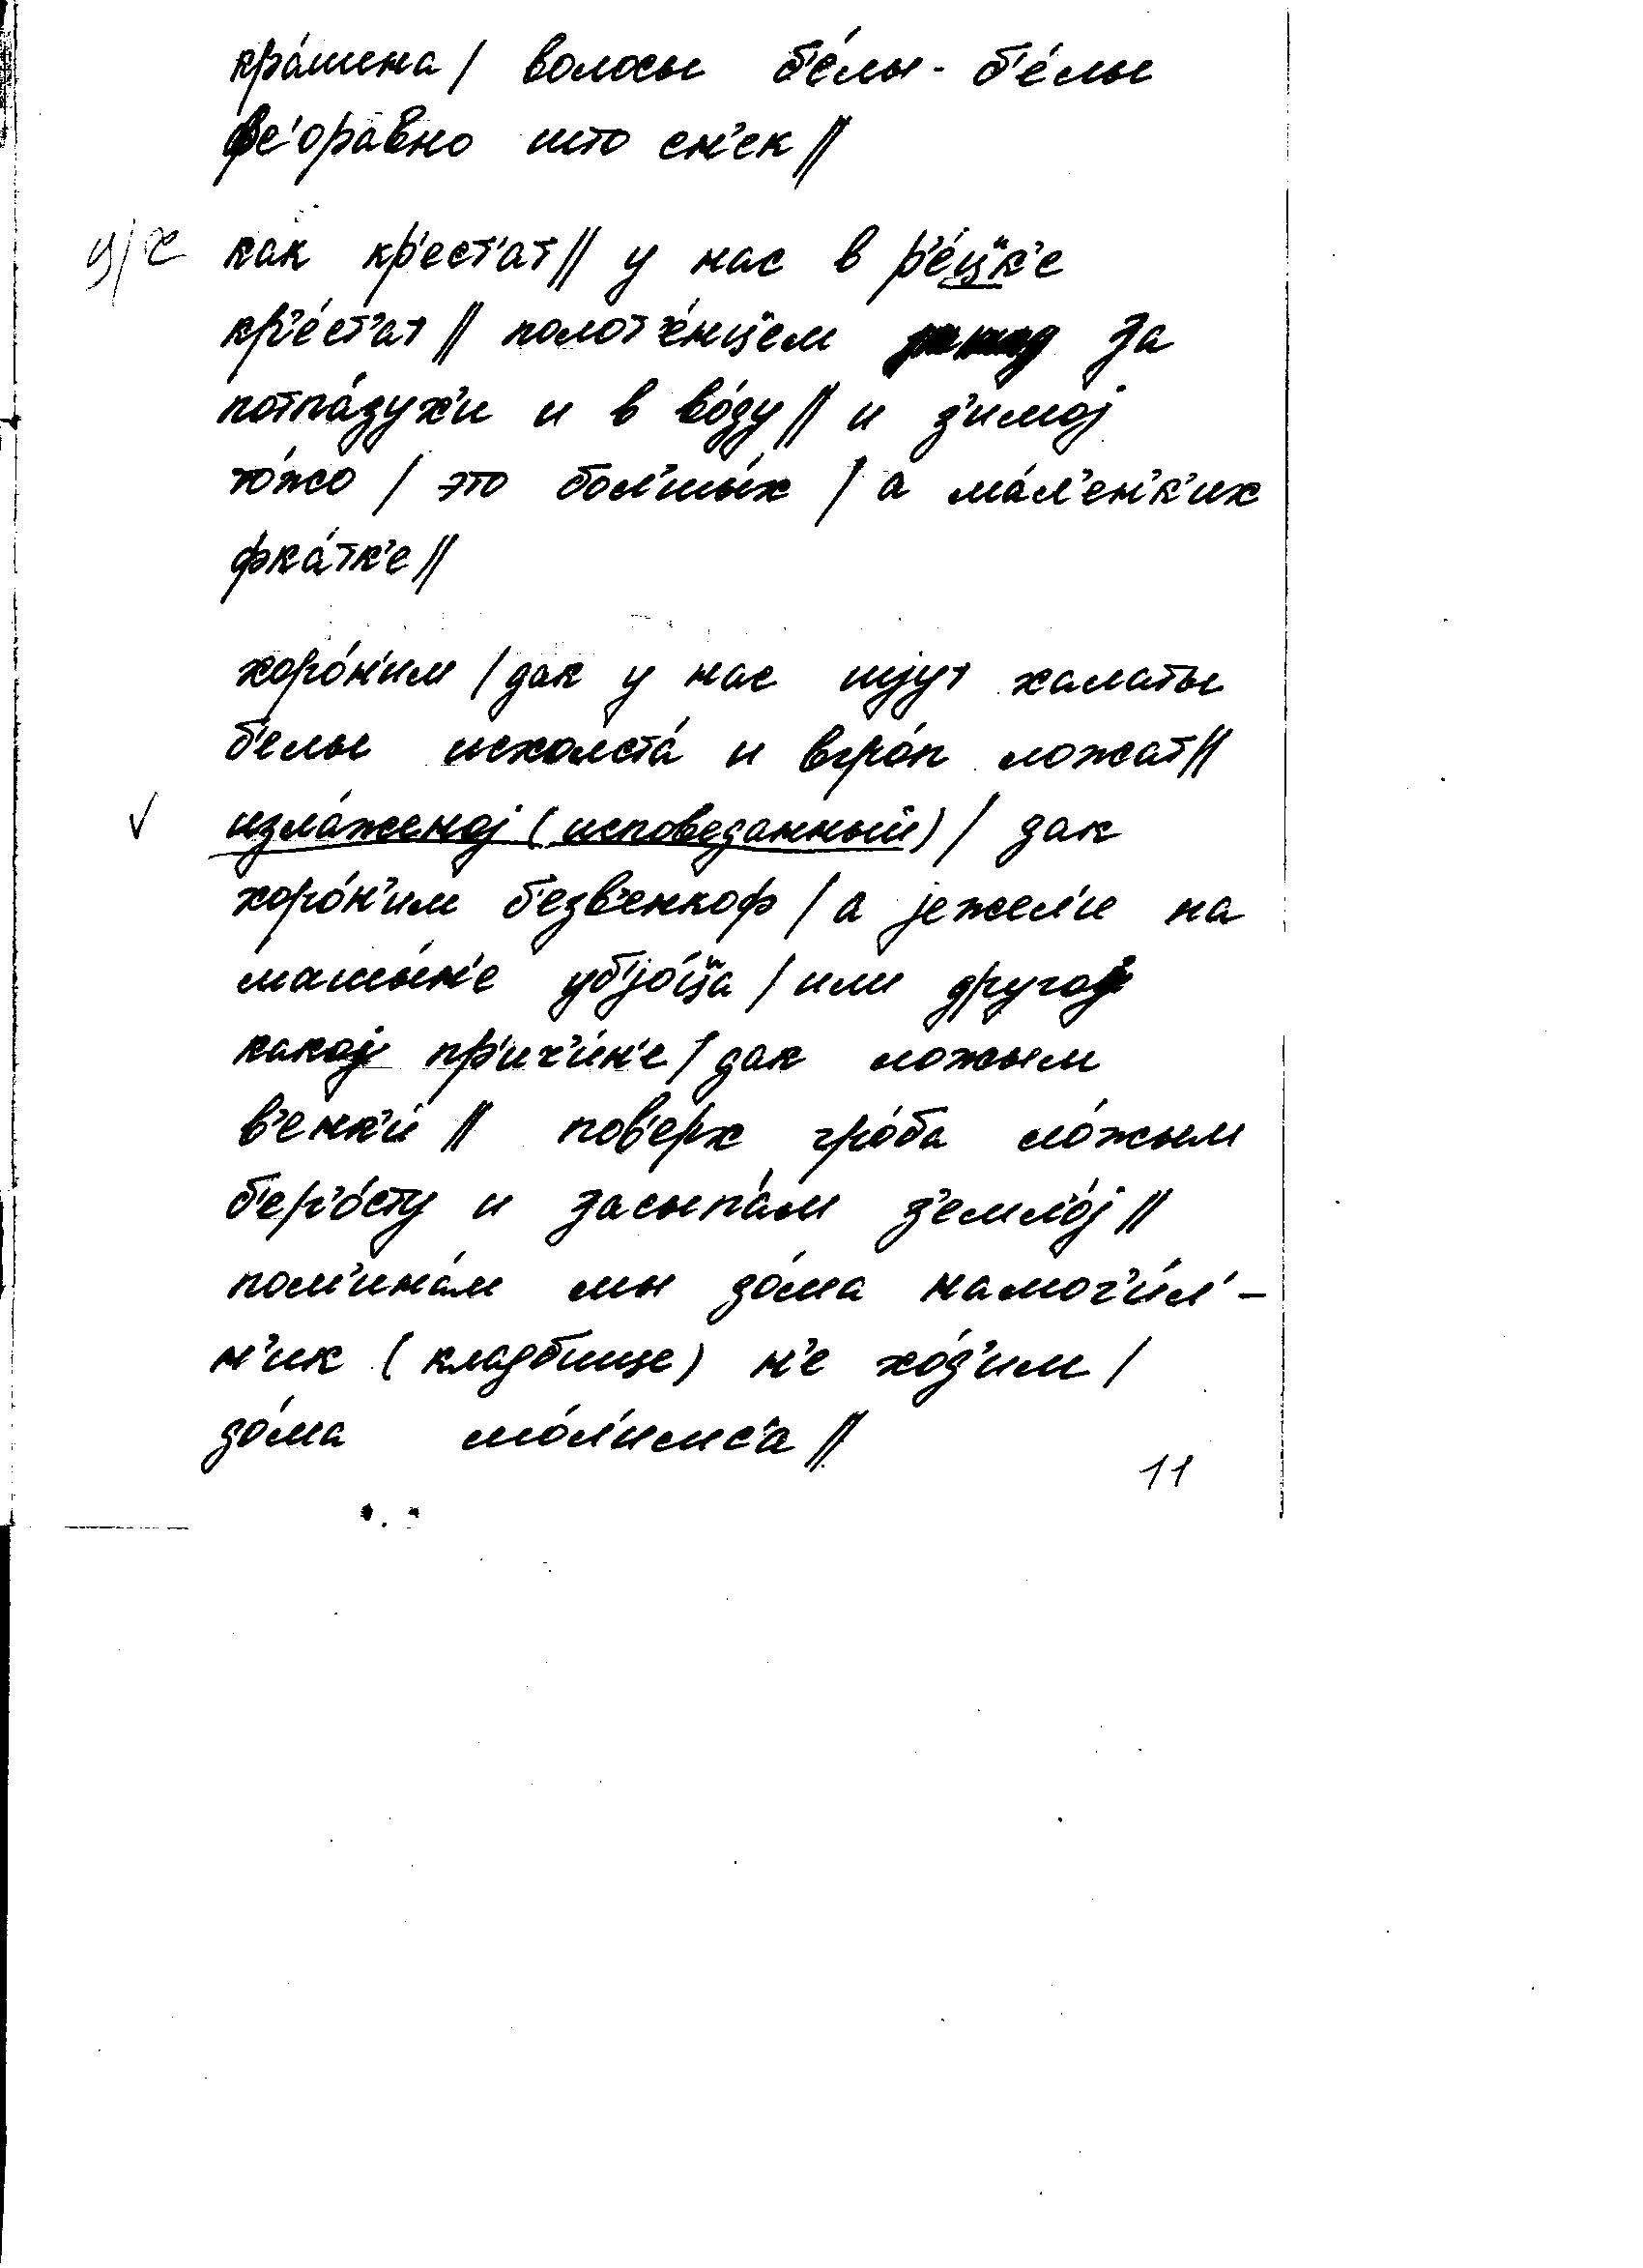 кра́шена / волосы б'е́лы - б'е́лы
фс'оравно што сн'ек //
ц/ч как кр'ест'ат // у нас в р'е́ц̈к'е
кр'е́ст'ат // полот'е́нц̈ем за
потпа́зух'и и в во́ду // и з'имој
то́жо / это бол'шы́х / а ма́л'ен'к'их
фка́тк'е //
хоро́н'им / дак у нас шјут халаты
б'елы исхолста́ и вгро́п ложат //
✓ изла́женој (исповеданный) / дак
хоро́н'им б'езв'енкоф / а јежел'и на
машы́н'е уб'јо́ц̈а / или другој
какој пр'ич'и́н'е / дак ложым
в'енк'и́ // пов'ерх гро́ба ло́жым
б'ер'о́сту и засыпа́м з'емл'о́ј //
пом'ина́м мы до́ма намог'и́л'-
н'ик (кладбище) н'е хо́д'им /
до́ма мо́л'имс'а //
11